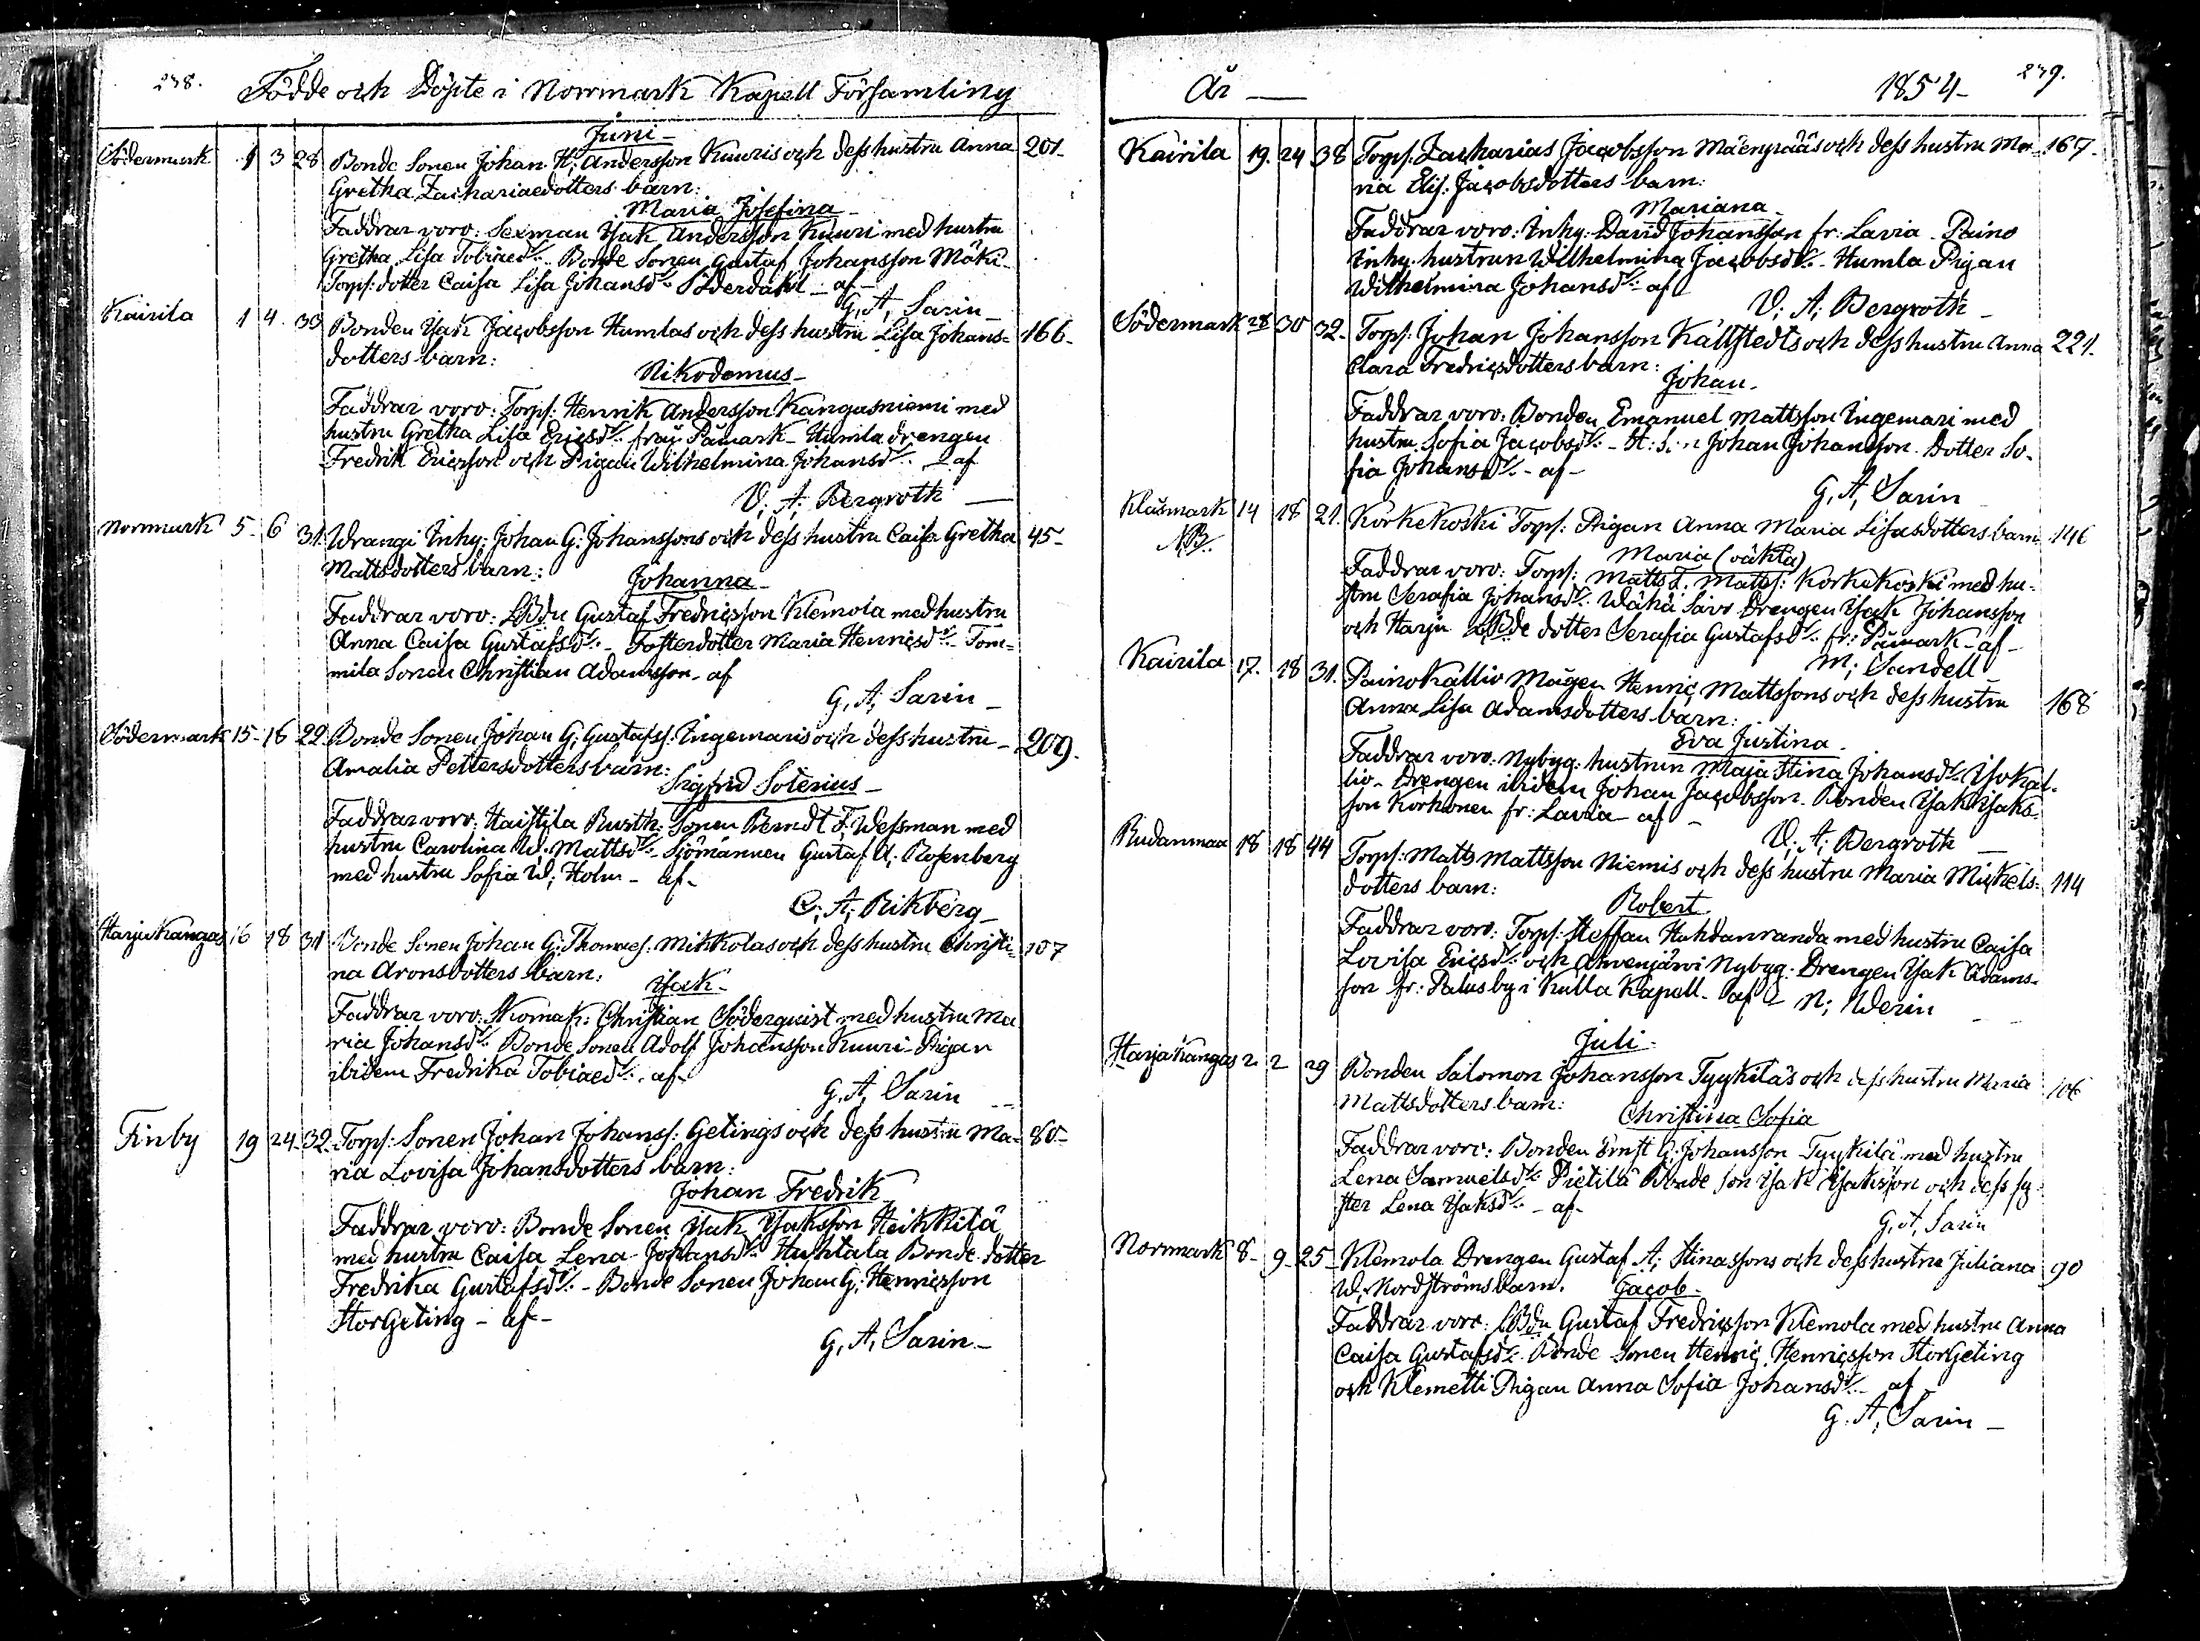 238.
Födde och Döpte i Norrmark Kapell Församling
Juni
Södermark 1 3 28 Bonde Sonen Johan H; Andersson Kuuris och dess hustru Anna 201
Gretha Zachariaedotters barn:
Maria Josefina
Faddrar voro: Sexman Isak Andersson Kuuri med hustru
Gretha Lisa Tobiaed:r Bonde Sonen Gustaf Johansson Mäki
Torps: dotter Caisa Lisa Johansd:r Söderdahl - af -
G, A, Sarin
Kairila 1 4 30 Bonden Isak Jacobsson Humlas och dess hustru Lisa Johans= 166
dotters barn:
Nikodemus
Faddrar voro: Torps: Henrik Andersson Kangasniemi med
hustru Gretha Lisa Ericsd:r från Påmark - Humla drengen
Fredrik Ericsson och Pigan Wilhelmina Johansd:r - af
V; A; Bergroth
Norrmark 5 6 31 Wrangi Inhy: Johan G; Johanssons och dess hustru Caisa Gretha 45
Mattsdotters barn:
Johanna
Faddrar voro: Gustaf Fredricsson Klemola med hustru
Anna Caisa Gustafsd:r - Fosterdotter Maria Henricsd:r - Tom=
mila Sonen Christian Adamsson - af
G, A, Sarin
Södermark 15 16 22 Bonde Sonen Johan G; Gustafss: Ingemaris och dess hustru 209.
Amalia Pettersdotters barn:
Sigfrid Soterius
Faddrar voro: Haistila Rusth: Sonen Berndt F, Wessman med
hustru Carolina W: Mattsd:r - Sjömannen Gustaf A; Rosenberg
med hustru Sofia W; Holm - af -
C; A; Rikberg
Harjukangas 16 18 31 Bonde Sonen Johan G; Thomaes: Mikkolas och dess hustru Christi= 107
na Aronsdotters barn:
Isak
Faddrar voro: Skomak: Christian Söderquist med hustru Ma
ria Johansd:r Bonde Sonen Adolf Johansson Kuuri - Pigan
ibidem Fredrika Tobiaed:r - af -
G, A, Sarin
Finby 19 24 32 Torps: Sonen Johan Johanss: Getings och dess hustru Ma= 80
ria Lovisa Johansdotters barn:
Johan Fredrik
Faddrar voro: Bonde Sonen Isak Isaksson Heikkilä
med hustru Caisa Lena Johansd:r Huhtala Bonde dotter
Fredrika Gustafsd:r - Bonde Sonen Johan G; Henricsson
StorGeting - af -
G, A, Sarin
År 1854 239.
Kairila 19. 24 38 Torps: Zacharias Jacobsson Mäenpääs och dess hustru Ma= 167
ria Elis: Jacobsdotters barn:
Mariana
Faddrar voro: Inhy: David Johansson fr: Lavia - Paino
Inhy: hustrun Wilhelmina Jacobsd:r - Humla Pigan
Wilhelmina Johansd:r - af
V; A; Bergroth
Södermark 28 30 32 Torps: Johan Johansson Källstedts och dess hustru Anna 221.
Clara Fredricsdotters barn:
Johan
Faddrar voro: Bonden Emanuel Mattsson Ingemari med
hustru Sofia Jacobsd:r - Johan Johansson. Dotter So=
fia Johansd:r - af -
G, A, Sarin
Klåsmark 14 18 21. Korkekoski Torps: Pigan Anna Maria Lisasdotters barn 146
NB.
Maria (oäkta)
Faddrar voro: Torps: Matts Matts: Korkekoski med hu=
stru Serafia Johansd:r Wähä Savo Drengen Isak Johansson
och Harju dotter Serafia Gustafsd:r fr: Påmark - af -
M; Sandell
Kairila 17. 18 31. PainoKallio Mågen Henric Mattssons och dess hustru 168
Anna Lisa Adamsdotters barn:
Eva Justina
Faddrar voro: Nybyg: hustrun Maja Stina Johansd:r IsoKal=
lio - Drengen ibidem Johan Jacobsson. Bonden Isak Isaks=
son Korhonen fr: Lavia - af
V; A; Bergroth
Rudanmaa 18 18 44 Torps: Matts Mattsson Niemis och dess hustru Maria Mickels= 114
dotters barn:
Robert
Faddrar voro: Torps: Steffan Huhdanranda med hustru Caisa
Lovisa Ericsd:r och Ahvenjärvi Nybyg: Drengen Isak Adams=
son fr: Palus by i Kulla Kapell - af N; Werin
Juli
Harjakangas 2. 2 29 Bonden Salomon Johansson Tyykiläs och dess hustru Maria 106
Mattsdotters barn:
Christina Sofia
Faddrar voro: Bonden Ernst G; Johansson Tyykilä med hustru
Lena Samuelsd:r Pietilä Bonde son Isak Isaksson och dess sy=
ster Lena Isaksd:r - af -
G, A, Sarin
Norrmark 8 9 25 Klemola Drengen Gustaf A; Stinassons och dess hustru Juliana 90
W; Nordströms barn.
Jacob
Faddrar voro: Gustaf Fredricsson Klemola med hustru Anna
Caisa Gustafsd:r Bonde Sonen Henric Henricsson StorGeting
och Klemetti Pigan Anna Sofia Johansd:r - af
G. A, Sarin